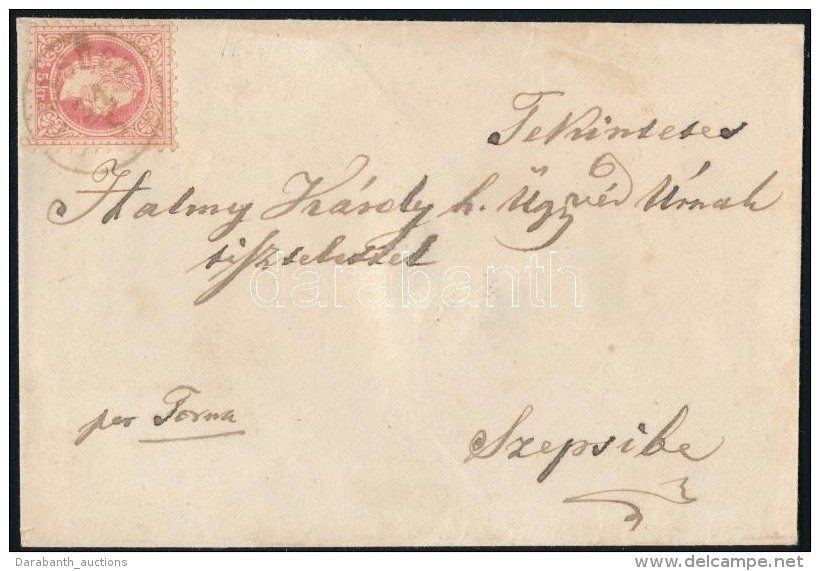 5 kr
Tekintetes
Halmy Károly h. Ügyvéd Úrnak
tisztelettel
darabanth
per Torna
Szepsibe
Darabanth_auctions
delcampe.net